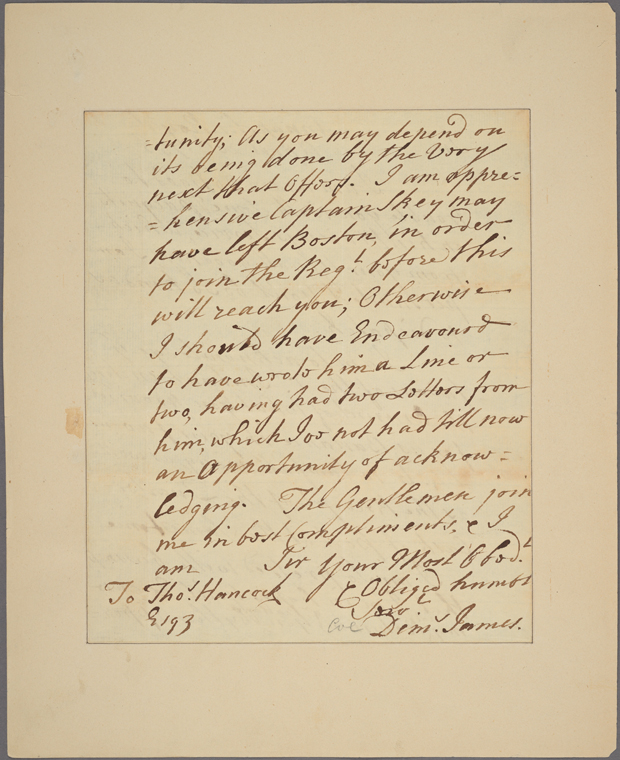 =tunity; As you may depend on
its being done by the Very
next that Offers. I am appre=
=hensive Captain Skey may
have left Boston, in order
to join the Regt. before this
will reach you; Otherwise
I should have Endeavourd
to have wrote him a Line or
two, having had two Letters from
him, which I've not had till now
an Opportunity of acknow=
ledging. The Gentlemen join
me in best Compliments. & I
am Sir Your Most Obedt.
To Thos. Hancock & Obliged humbl
Esqr Serv
Coe Dims. James.